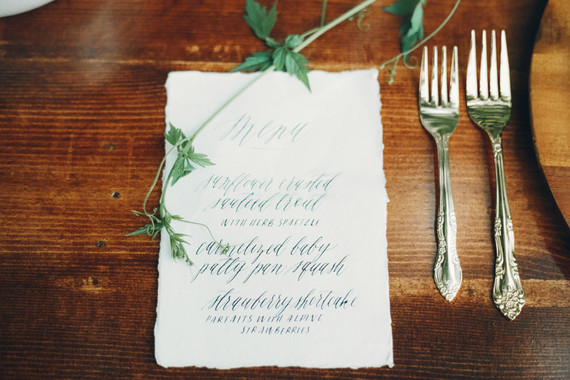 Menu
sunflower crusted
sautéed trout
WITH HERB SPAETZLE
caramelized baby
patty pan squash
strawberry shortcake
PARFAITS WITH ALPINE
STRAWBERRIES